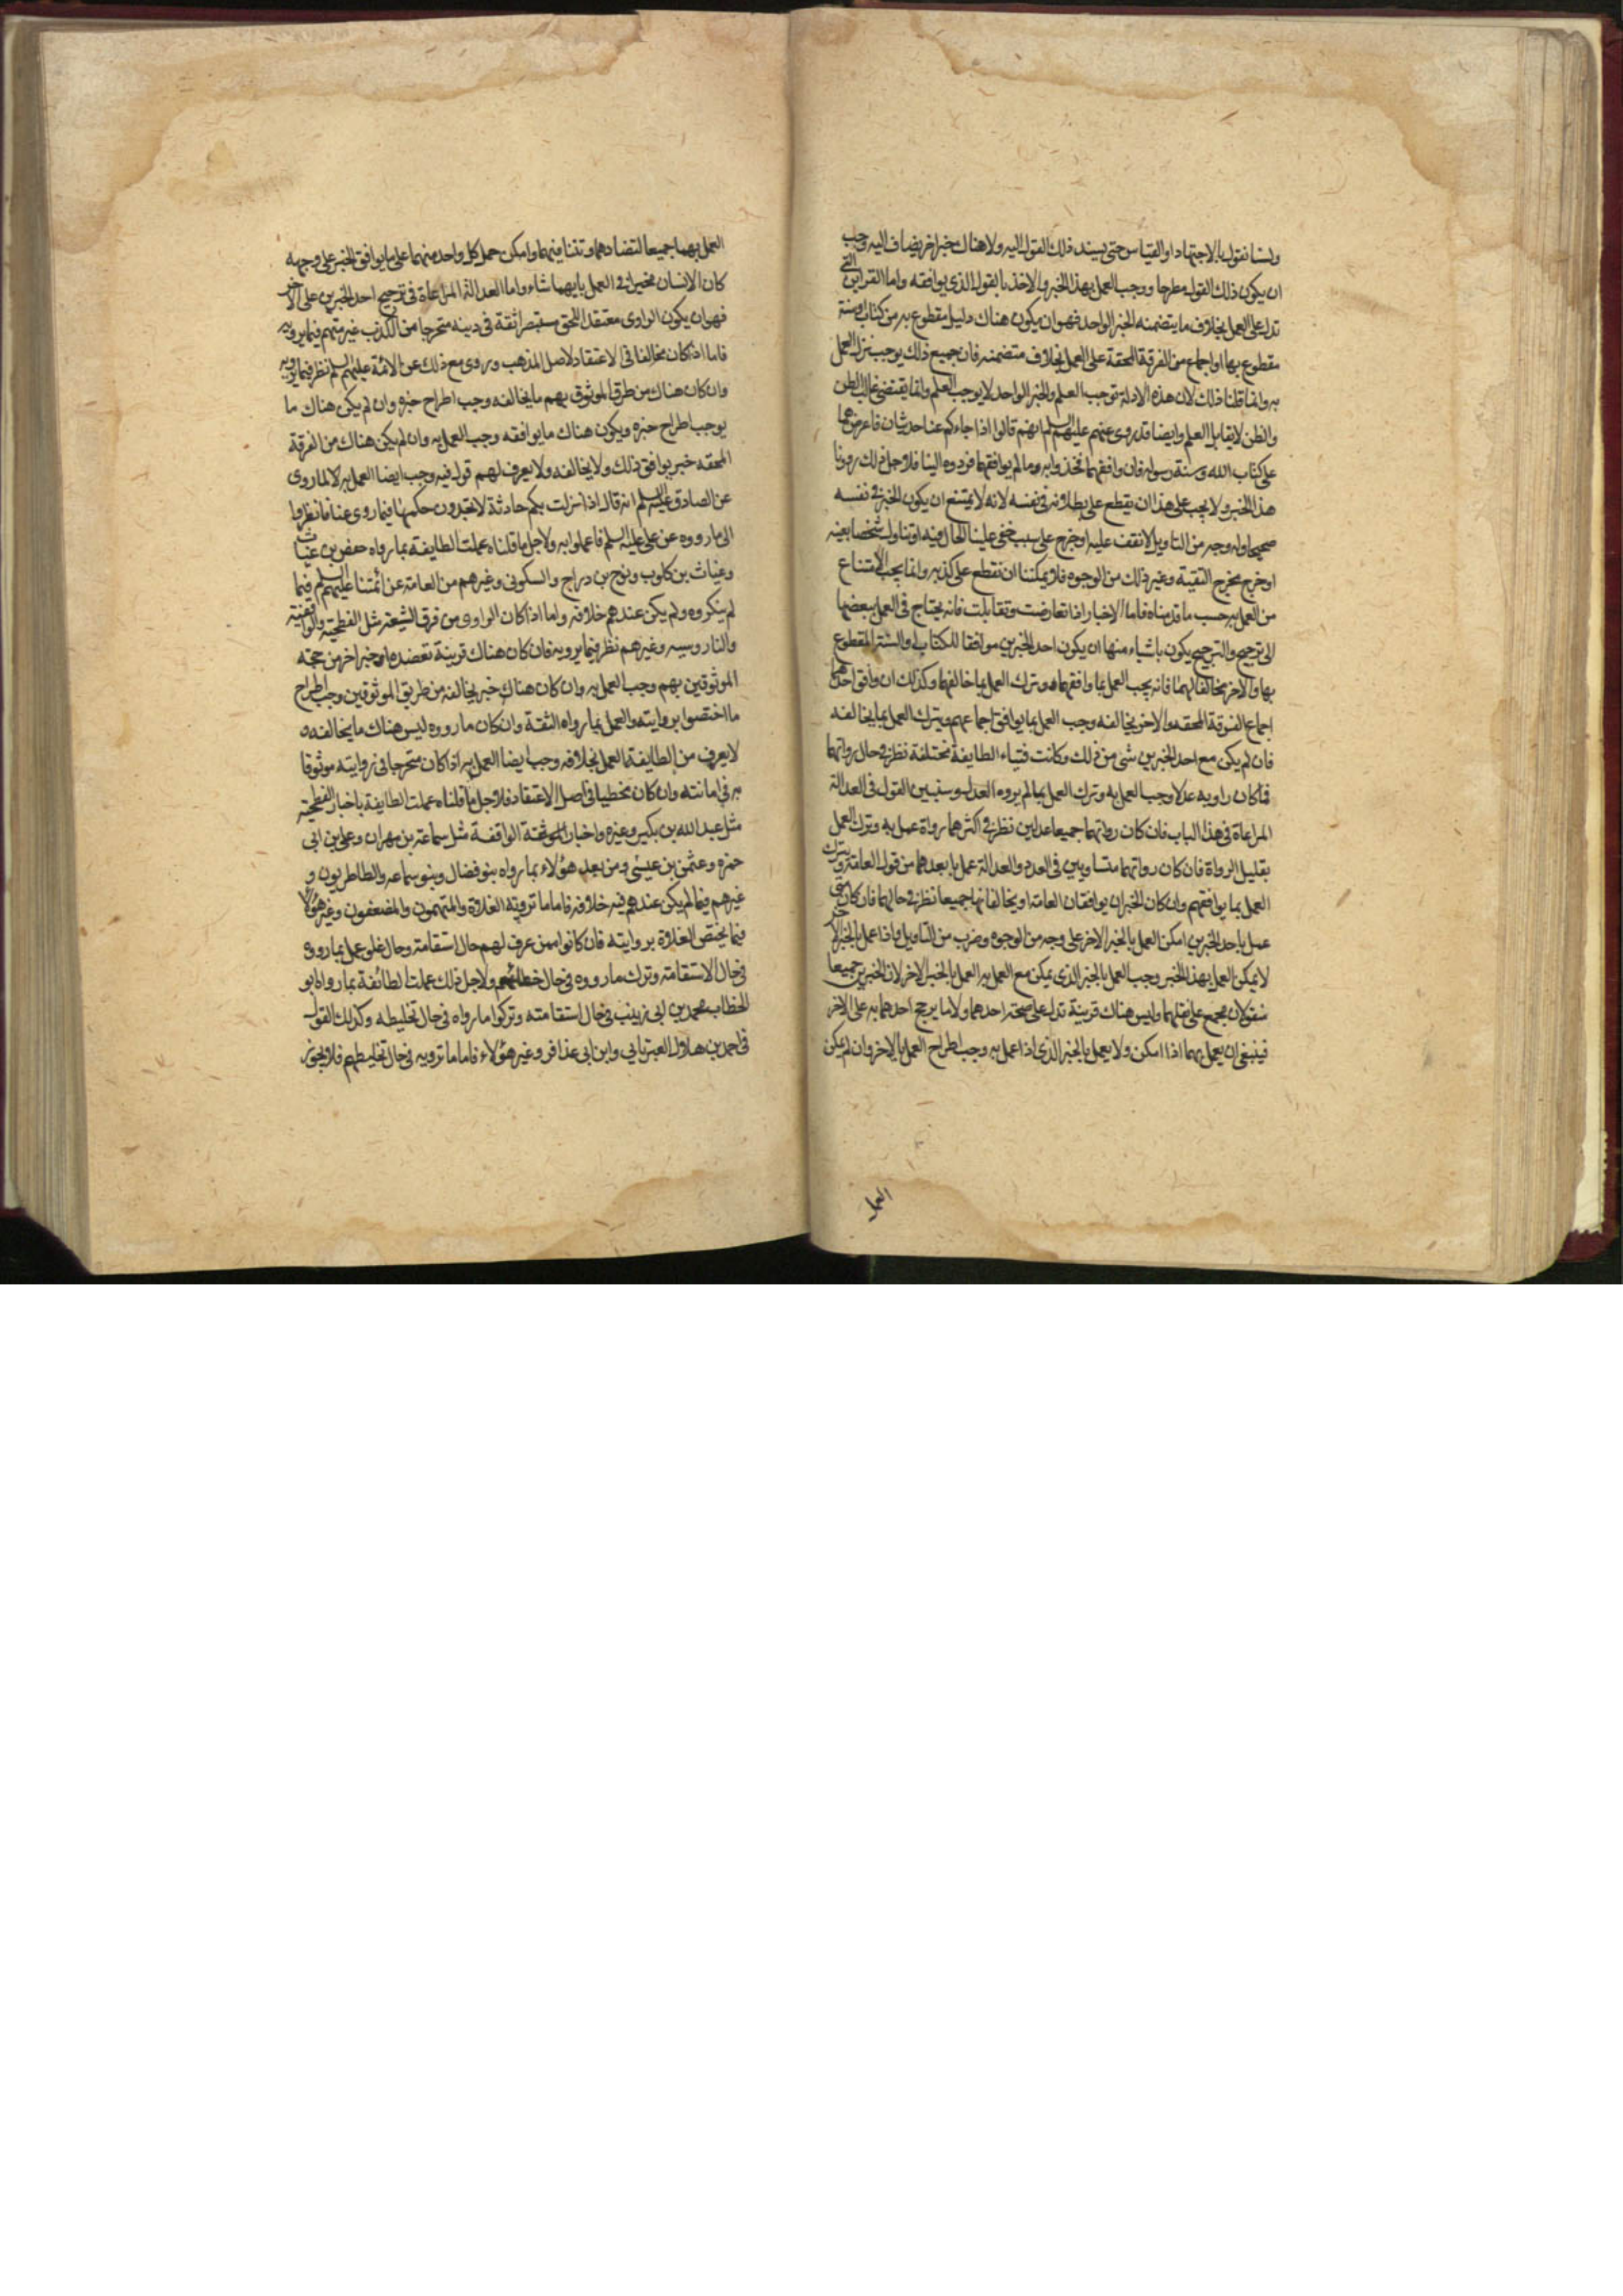 ولسنا نقول بالاجتهاد او القياس حتى يسند ذلك القول اليه ولا هناك خبر اخر يضاف اليه وجب
ان يكون ذلك القول مطرحا ووجب العمل بهذا الخبر والاخذ بالقول الذي يوافقه واما القراين التي
تدل على العمل بخلاف ما يتضمنه الخبر الواحد فهو ان يكون هناك دليل مقطوع به من كتاب او سنة
مقطوع بها او اجماع من الفرقة المحقة على العمل بخلاف متضمنه فان جميع ذلك يوجب ترك العمل
به وانما قلنا ذلك لان هذه الادلة توجب العلم والخبر الواحد لا يوجب العلم وانما يقتضي غالب الظن
والظن لا يقابل العلم وايضا قد روى عنهم عليهم السلم انهم قالوا اذا جاءكم عنا حديثان فاعرضوهما
على كتاب الله وسنة رسوله فان وافقهما فخذوا به وما لم يوافقهما فردوه الينا فلاجل ذلك رددنا
هذا الخبر ولا يجب على هذا ان يقطع على بطلانه في نفسه لانه لا يمتنع ان يكون الخبر في نفسه
صحيحا وله وجه من التاويل لا نقف عليه او خرج على سبب خفى علينا الحال فيه او تناول شخصا بعينه
او خرج مخرج التقية وغير ذلك من الوجوه فلا يمكننا ان نقطع على كذبه وانما يجب الامتناع
من العمل به حسب ما قدمناه فاما الاخبار اذا تعارضت وتقابلت فانه يحتاج في العمل ببعضها
الى ترجيح والترجيح يكون باشياء منها ان يكون احد الخبرين موافقا للكتاب او السنة المقطوع
بها والاخر مخالفا لهما فانه يجب العمل بما وافقهما وترك العمل بما خالفهما وكذلك ان وافق احدهما
اجماع الفرقة المحقه والاخر يخالفه وجب العمل بما يوافق اجماعهم ويترك العمل بما يخالفه
فان لم يكن مع احد الخبرين شى من ذلك وكانت فتياء الطايفة مختلفة نظر في حال رواتهما
فما كان راويه عدلا وجب العمل به وترك العمل بما لم يروه العدل وسنبين القول في العدالة
المراعاة في هذا الباب فان كان رواتهما جميعا عدلين نظر في اكثرهما رواة عمل به وترك العمل
بقليل الرواة فان كان رواتهما متساويين في العدد والعدالة عمل بابعدهما من قول العامة وترك
العمل بما يوافقهم وان كان الخبران يوافقان العامة او يخالفانها جميعا نظر في حالهما فان كان متى
عمل باحد الخبرين امكن العمل بالخبر الاخر على وجه من الوجوه وضرب من التاويل واذا عمل بالخبر الاخر
لا يمكن العمل بهذا الخبر وجب العمل بالخبر الذي يمكن مع العمل به العمل بالخبر الاخر لان الخبرين جميعا
منقولان مجمع على نقلهما وليس هناك قرينة تدل على صحة احدهما ولا ما يرجح احدهما به على الاخر
فينبغي ان يعمل بهما اذا امكن ولا يعمل بالخبر الذي اذا عمل به وجب اطراح العمل بالاخر وان لم يمكن
العمل
العمل بهما جميعا لتضادهما وتنافيهما وامكن حمل كل واحد منهما على ما يوافق الخبر على وجه
كان الانسان مخيرا في العمل بايهما شاء واما العدالة المراعاة في ترجيح احد الخبرين على الاخر
فهو ان يكون الراوى معتقدا للحق مستبصرا ثقة في دينه متحرجا من الكذب غير متهم فيما يرويه
فاما اذا كان مخالفا في الاعتقاد لاصل المذهب وروى مع ذلك عن الائمة عليهم السلم نظر فيما يرويه
وان كان هناك من طرق الموثوق بهم ما يخالفه وجب اطراح خبره وان لم يكن هناك ما
يوجب اطراح خبره ويكون هناك ما يوافقه وجب العمل به وان لم يكن هناك من الفرقة
المحقه خبر يوافق ذلك ولا يخالفه ولا يعرف لهم قول فيه وجب ايضا العمل به لما روى
عن الصادق عليه السلم انه قال اذا نزلت بكم حادثة لا تجدون حكمها فيما روى عنا فانظروا
الى ما رووه عن على عليه السلم فاعملوا به ولاجل ما قلناه عملت الطايفة بما رواه حفص بن غياث
وغياث بن كلوب ونوح بن دراج والسكونى وغيرهم من العامة عن ائمتنا عليهم السلم فيما
لم ينكروه ولم يكن عندهم خلافه واما اذا كان الراوى من فرق الشيعة مثل الفطحية والواقفية
والناروسيه وغيرهم نظر فيما يرويه فان كان هناك قرينة تعضده او خبر اخر من جهة
الموثوقين بهم وجب العمل به وان كان هناك خبر يخالفه من طريق الموثوقين وجب اطراح
ما اختصوا بروايته والعمل بما رواه الثقة وان كان ما رووه ليس هناك ما يخالفه و
لا يعرف من الطايفة العمل بخلافه وجب ايضا العمل به اذا كان متحرجا في روايته موثوقا
به في امانته وان كان مخطيا في اصل الاعتقاد فلاجل ما قلناه عملت الطايفة باخبار الفطحية
مثل عبد الله بن بكير وغيره واخبار الواقفة مثل سماعة بن مهران وعلى بن ابى
حمزه وعثمن بن عيسى ومن بعد هؤلاء بما رواه بنو فضال وبنو سماعه والطاطريون و
غيرهم فيما لم يكن عندهم فيه خلافه فاما ما ترويه الغلاة والمتهمون والمضعفون وغير هؤلاء
فيما يختص الغلاة بروايته فان كانوا ممن عرف لهم حال استقامة وحال غلو عمل بما رووه
في حال الاستقامة وترك ما رووه في حال خطائهم ولاجل ذلك عملت الطائفة بما رواه ابو
الخطاب محمد بن ابى زينب في حال استقامته وتركوا ما رواه في حال تخليطه وكذلك القول
في احمد بن هلال العبرتايي وابن ابى عذافر وغير هؤلاء فاما ما ترويه في حال تخليطهم فلا يجوز